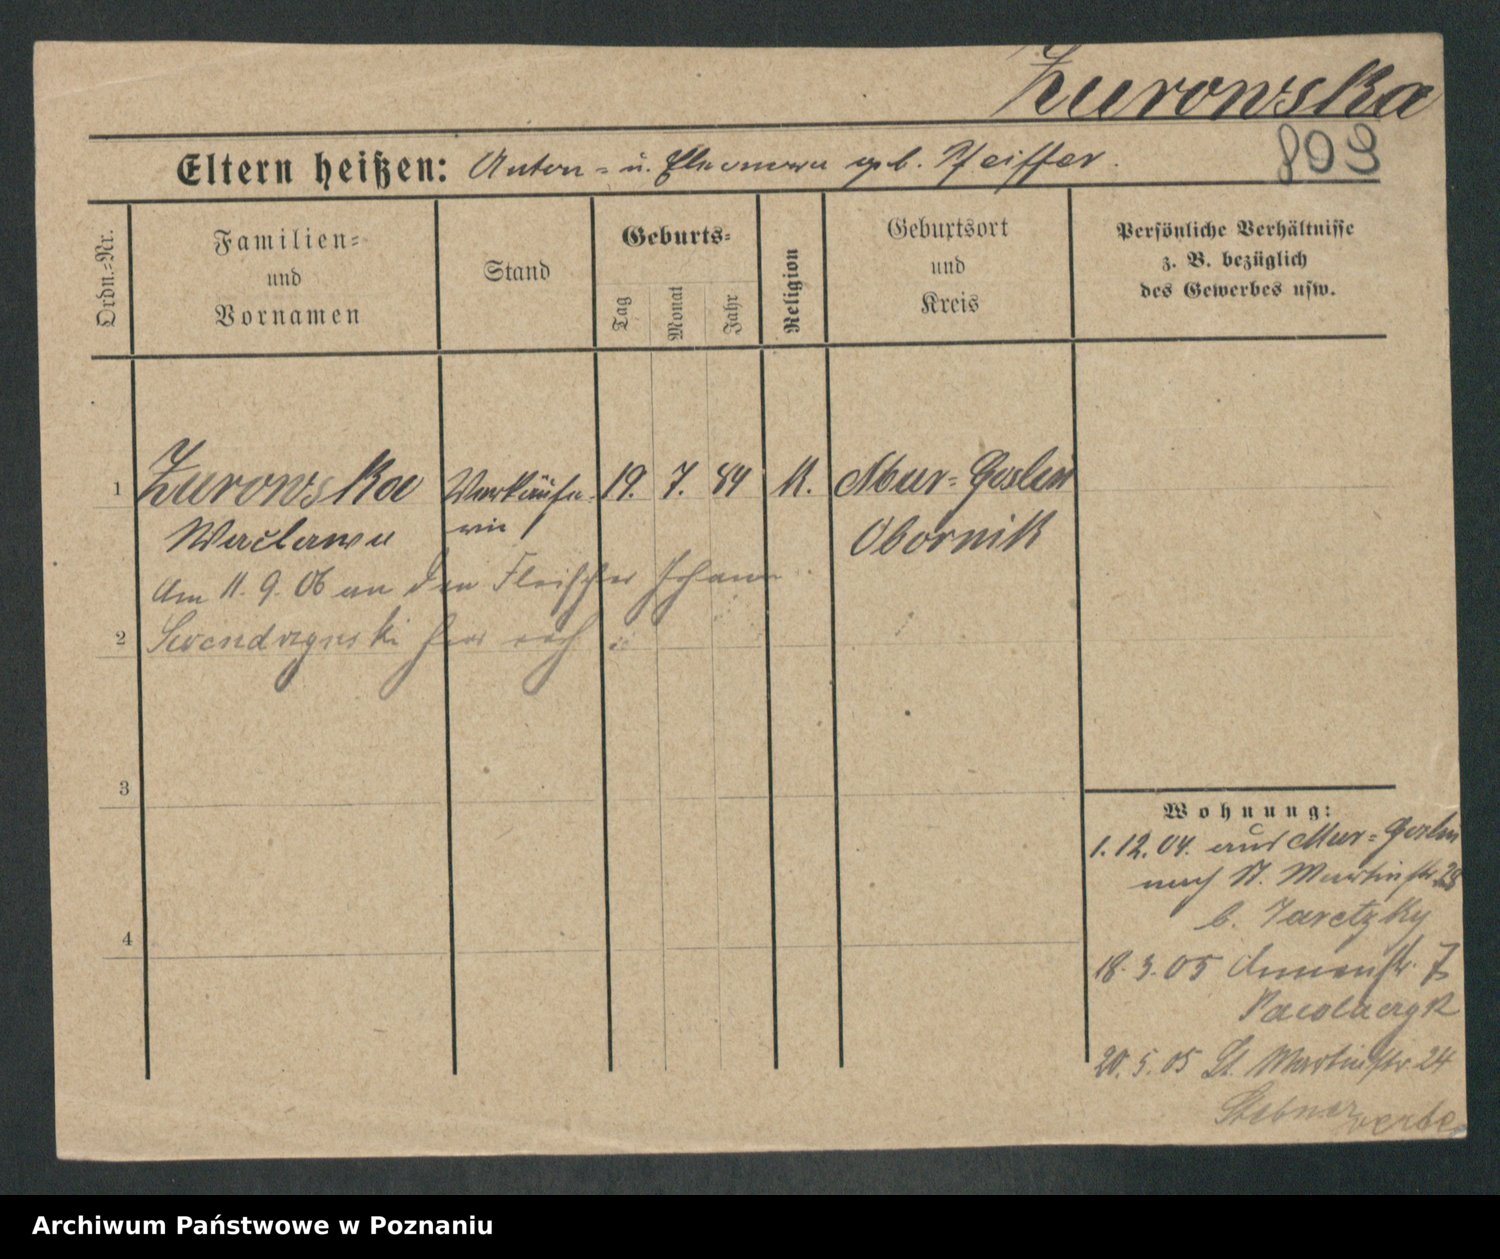 Zurowska
809
Eltern heißen: Anton = u. Eleonora geb. Pfeiffer.
Ordn.=Nr.
Familien=
und
Vornamen
Stand
Geburts=
Tag
Monat
Jahr
Religion
Geburtsort
und
Kreis
Persönliche Verhältnisse
z. B. bezüglich
des Gewerbes usw.
1 Zurowska Verkäufe- 19. 7. 84 K. Mur= Goslin
Waclawa rin Obornik
Am 11. 9. 06 an den Fleischer Johann
2
3
4
Wohnung:
1. 12. 04. aus Mur= Goslin
nach St. Martinstr 28
b. Jaretzky
18. 3. 05 7
20. 5. 05 St. Martinstr 24
Archiwum Państwowe w Poznaniu